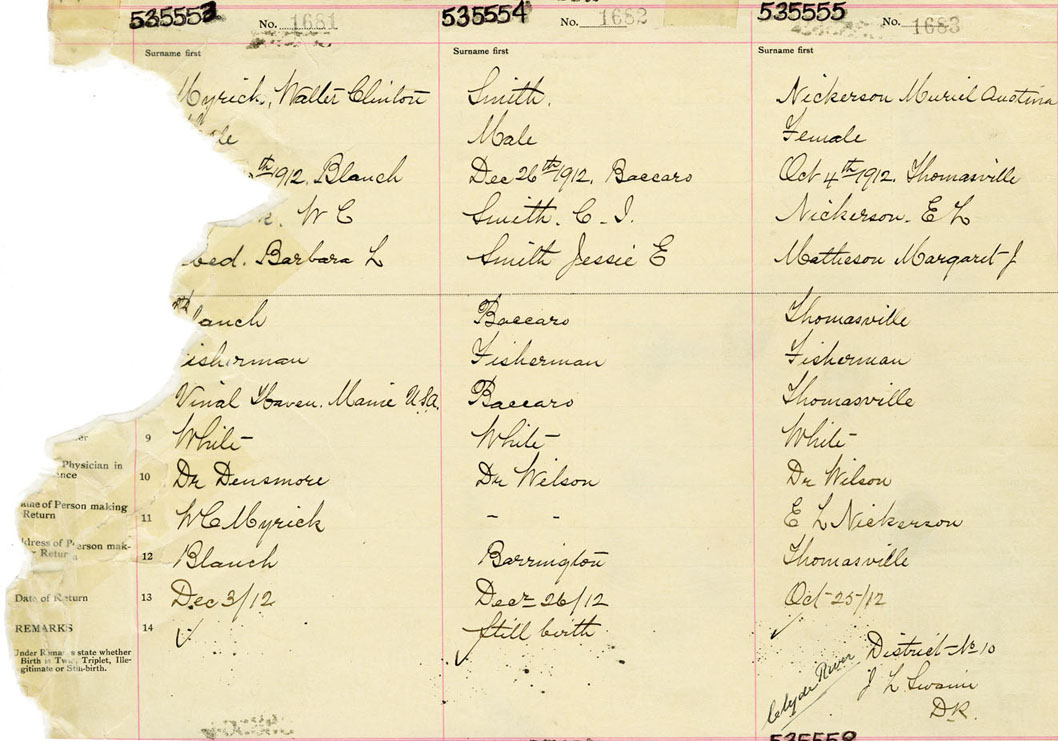 535553 No. 1681
535554 No. 1682
535555 No. 1683
Surname first
Surname first
Surname first
Myrick, Walter Clinton
Smith.
Nickerson Muriel Austina
le
Male
Female
th 1912. Blanch
Dec 26th 1912. Baccaro
Oct 4th 1912. Thomasville
k. W C
Smith. C. I.
Nickerson. E L
Barbara L
Smith Jessie E
Matheson Margaret J
lanch
Baccaro
Thomasville
isherman
Fisherman
Fisherman
Vinal Haven. Maine U.S.A.
Baccaro
Thomasville
er 9 White
White
White
Physician in
nce 10 Dr Densmore
Dr Wilson
Dr Wilson
ame of Person making
Return 11 W C Myrick
- -
E L Nickerson
dress of Person mak-
Return 12 Blanch
Barrington
Thomasville
Date of Return 13 Dec 3/12
Decr 26/12
Oct 25/12
REMARKS 14
Still birth
Under Remarks state whether
Birth is Twin, Triplet, Ille-
gitimate or Still-birth.
Clyde River
District No 10
J L Swaine
D.R.